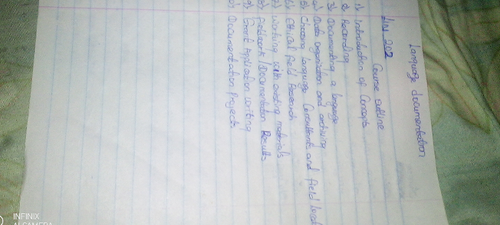 Language documentation
Course outline
202
1) Introduction of Concepts
2) Recording
3) Documenting a language
4) Data organization and archiving
5) Choosing language Consultants and field
6) Ethical field Research
7) Working with existing materials
8) Fieldwork/Documentation Results
9) Grant Application writing
10) Documentation Projects
INFINIX
AI CAMERA